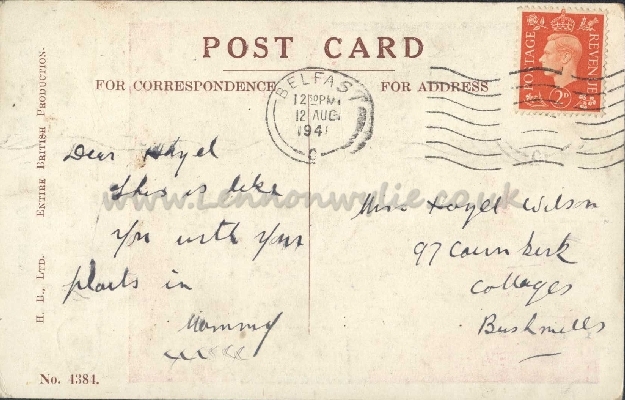 POST CARD
FOR CORRESPONDENCE
FOR ADDRESS
POSTAGE
REVENUE
2D
BELFAST
12 PM
12 AUG
1941
C
Dear Hazel
this is like
you with your
plaits in
Mommy
Miss Hazel Wilson
97
Cottages
Bushmills
H. B., LTD. ENTIRE BRITISH PRODUCTION.
No. 4384.
www.Lennonwylie.co.uk